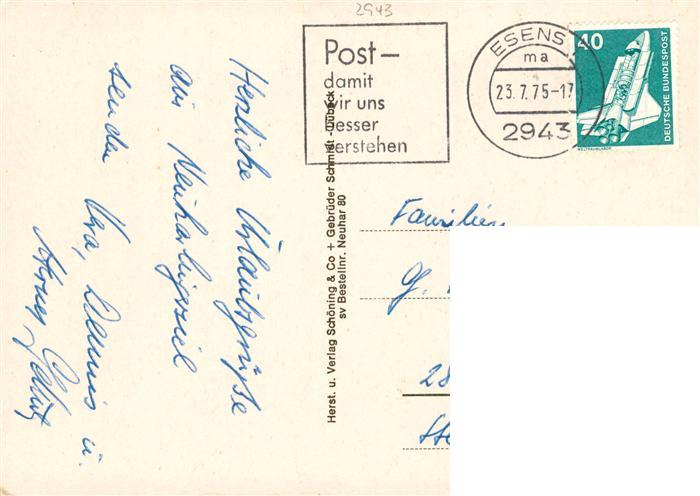 2943
Post–
damit
wir uns
besser
verstehen
ESENS
ma
23.7.75-17
2943
40
DEUTSCHE BUNDESPOST
WELTRAUMLABOR
Herzliche Urlaubsgrüße
aus Neuharlingersiel
senden Ura, Dennis u.
Herst. u. Verlag Schöning & Co + Gebrüder Schmidt Lübeck
sv Bestellnr. Neuhar 80
Familien
G.
28